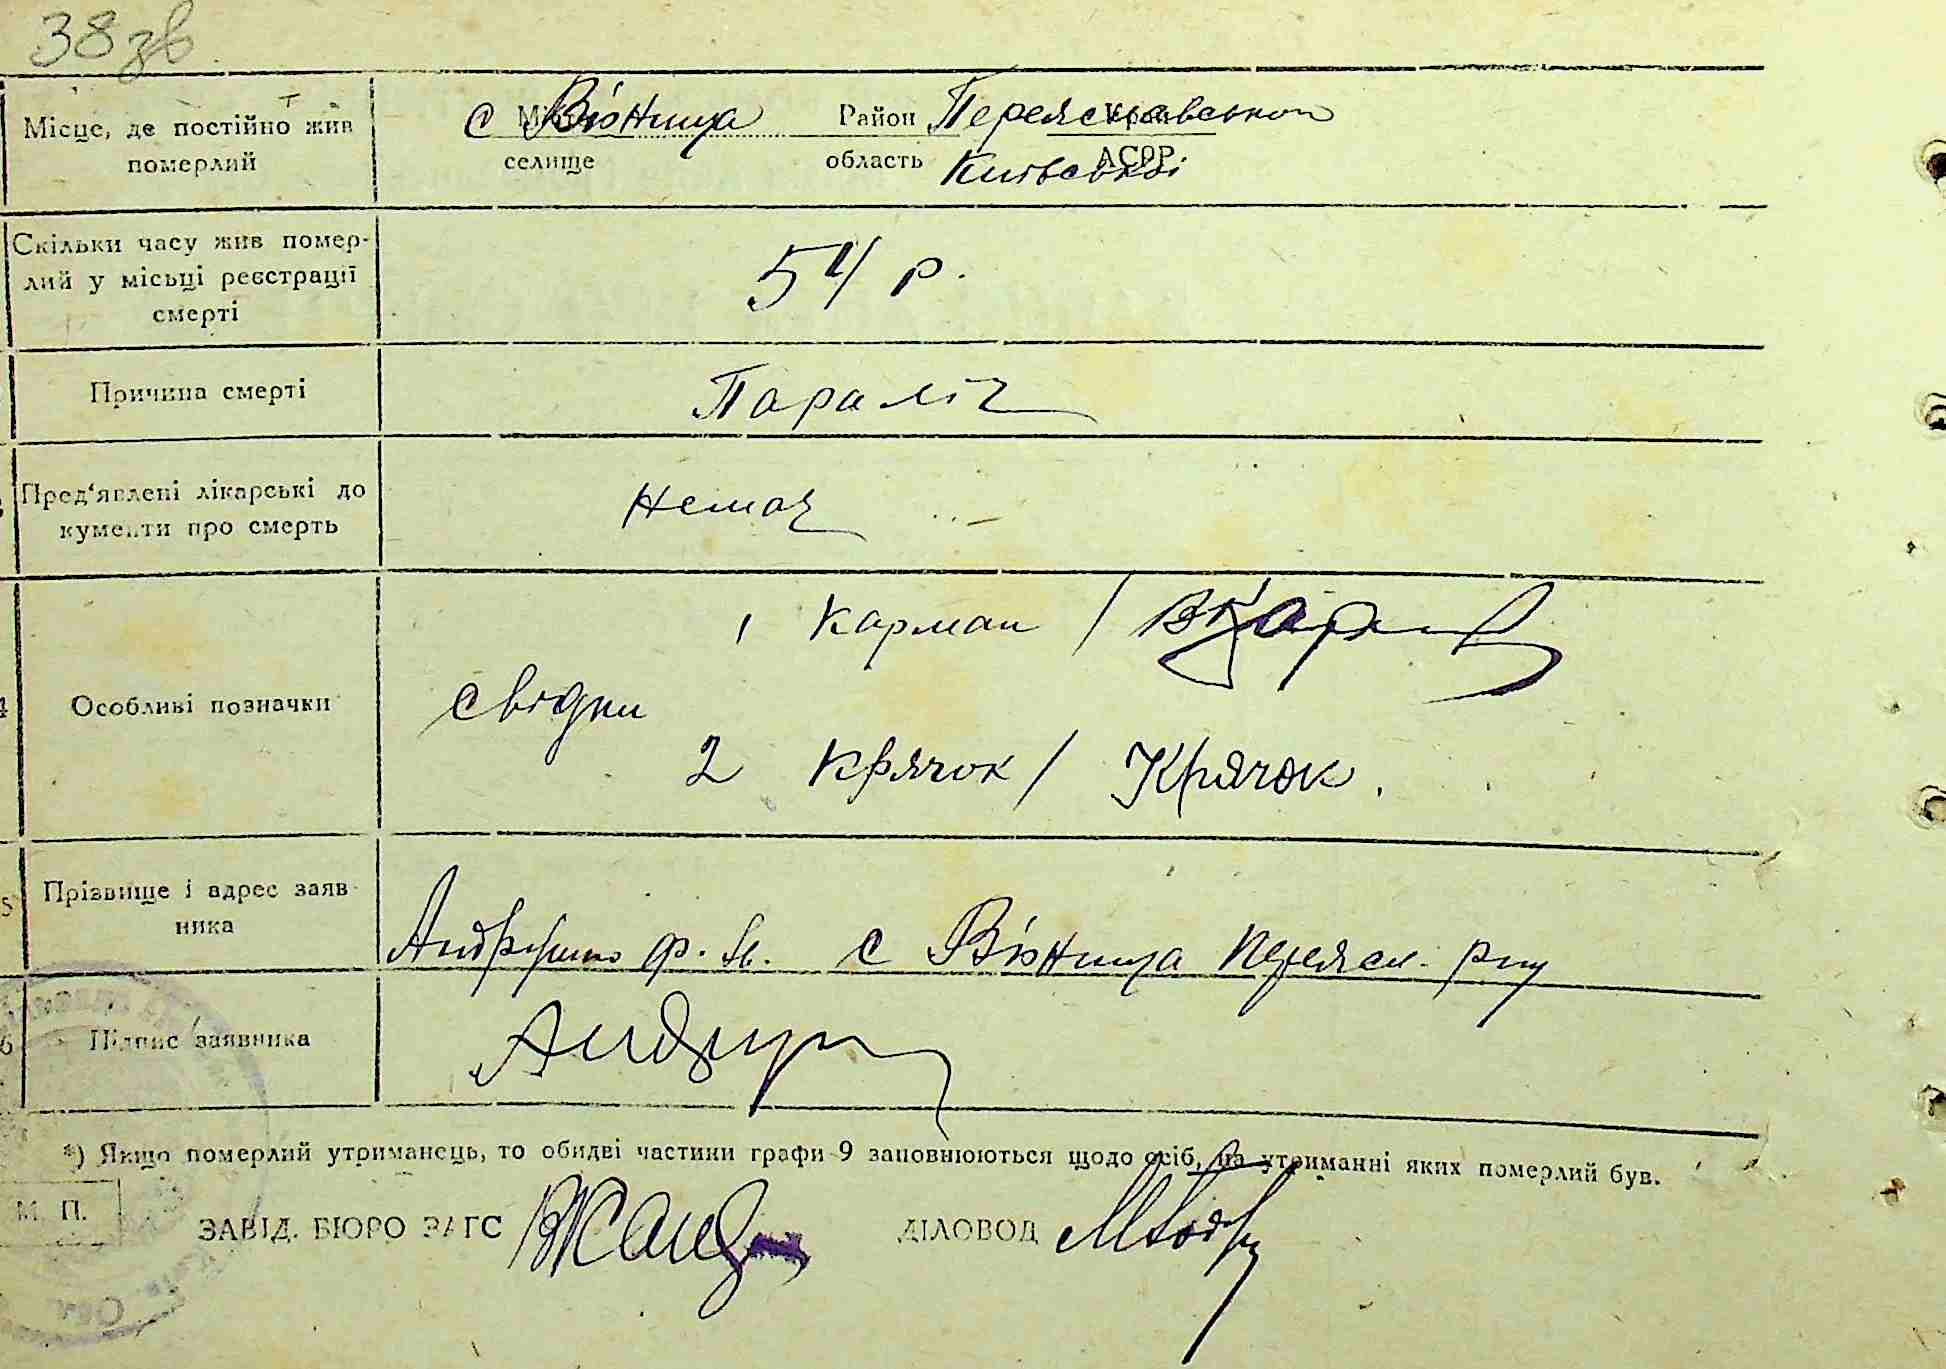 38 зв
Місце, де постійно жив померлий
с Вюнища Район Переяславського
селище область Київської АСРР.
Скільки часу жив помер-
лий у місьці реєстрації
смерті
54 р.
Причина смерті
Параліч
Пред'явлені лікарські до
кументи про смерть
Немає
1 Карман /
Особливі позначки
свідки
2 Крячок / Крячок.
Прізвище і адрес заяв
ника
с Вюнища Переясл. р-ну
Підпис заявника
*) Якщо померлий утриманець, то обидві частини графи 9 заповнюються щодо осіб, на утриманні яких померлий був.
М. П.
ЗАВІД. БЮРО ЗАГС ДІЛОВОД